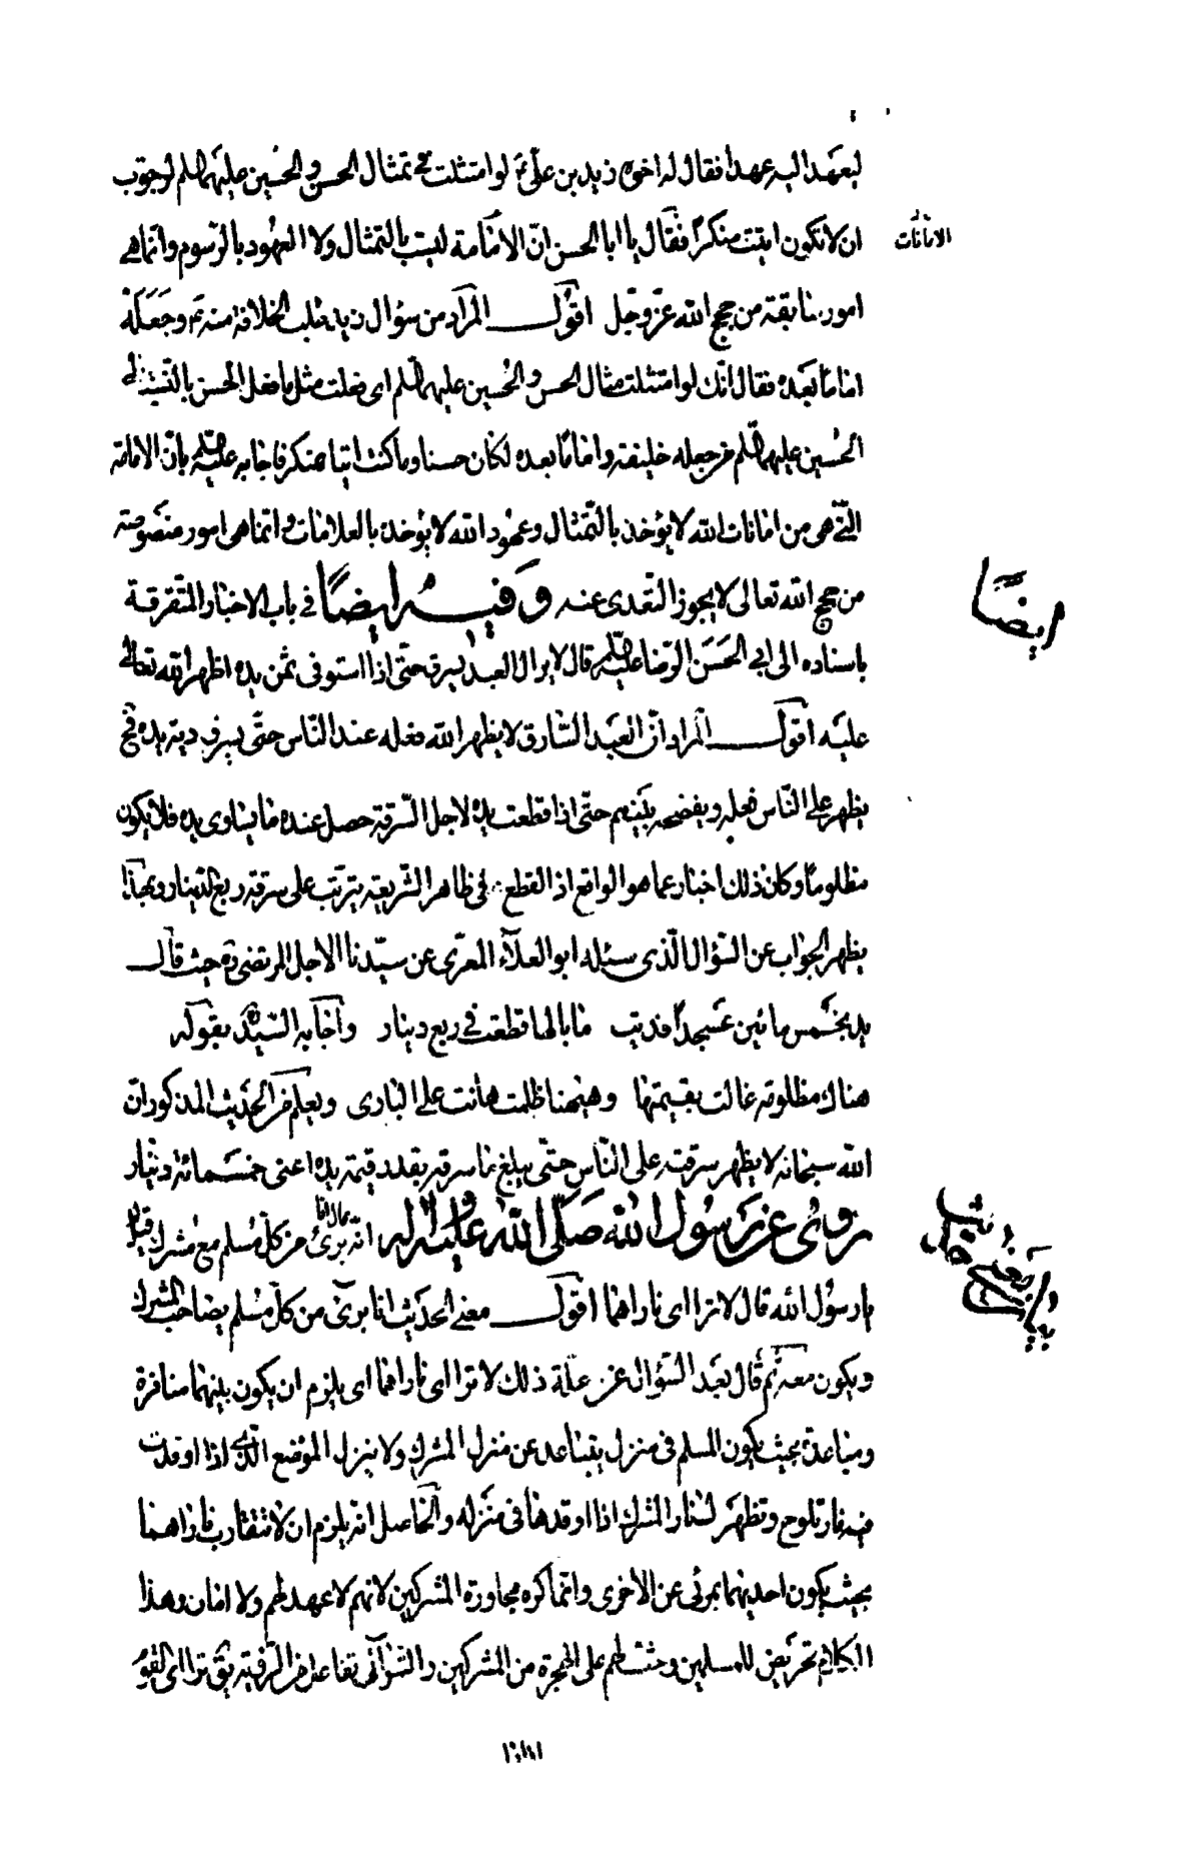 ليعهد اليه عهدا فقال له اخوه زيد بن علىّ ع لو امتثلت فىّ تمثال الحسن و الحسين عليهما السلم لرجوت
ان لا تكون اتيت منكرًا فقال يا ابا الحسن انّ الامامة ليست بالتمثال ولا العهود بالرّسوم وانّما هى
الامانات
امور سابقة من حجج الله عزّ وجّل اقول المراد من سؤال زيد طلب الخلافة منه ع وجَعَله
امامًا بعَده فقال انّك لو امتثلت مثال الحسن و الحُسين عليهما السّلم اى فعلت مثل ما فعل الحسن بالنّسبة الى
الحُسين عليهما السّلم من جعله خليفة واماما بعده لكان حسنا وما كنت اتيا بمنكر فاجابه عليه السّلم بانّ الامامة
الّتى هى من امانات الله لا يؤخذ بالتّمثال وعهود الله لا يؤخذ بالعلامات وانّما هى امور منصَوصة
من حجج الله تعالى لا يجوز التّعدى عنه وفيه ايضًا فى باب الاخبار المتّفرقة
ايضًا
باسناده الى ابى الحَسَن الرّضا عليه السّلم قال لا يزال العبد يسرق حتّى اذا استوفى ثمن يده اظهر الله تعالى
عليه اقول المراد انّ العَبد السّارق لا يظهر الله فعله عند النّاس حتّى يسرق دية يده فح
يظهر على النّاس فعله ويفضحه بَينهم حتّى اذا قطعت يده لاجل السّرقة حصل عنده ما يساوى يده فلا يكون
مظلومًا وكان ذلك اخبار عما هو الواقع اذ القطع فى ظاهر الشّريعة يترتّب على سرقة ربع الدّينار وبهذا
يظهر الجواب عن السّؤال الّذى سئله ابو العلآء المعرّى عن سيّدنا الاجل المرتضى ره حيث قال
يد بخَمس مائين عَسجدًا فديت ما بالها قطعت فى ربع دينار واجابه السّيّد بقوله
هناك مظلومة غالت بقيمتها وهيهنا ظلمت هانت على البارى ويعلم من الحديث المذكور انّ
الله سبحانه لا يظهر سرقته على النّاس حتّى يبلغ ما سرقه بقدر قيمة يده اعنى خمسَمائة دينار
روى عن رَسُول الله صَلّى الله عليه واله انّه قال انا برىٔ من كلّ مُسلم مع مُشرك قيل
يا رسُول الله قال لا ترا اى ناراهما اقول معنى الحديث انا برىٔ من كلّ مُسلم يصاحب المشرك
ويكون معه ثم قال بعَد السّؤال عن علّة ذلك لا ترا اى ناراهما اى يلزم ان يكون بينهما منافرة
ومباعدة بحيث يكون المسلم فى منزل يتباعد عن منزل المشرك ولا ينزل الموضع الّذى اذا اوقدت
فيه نار تلوح وتظهَر لنار المشرك اذا اوقدها فى منَزله والحاصل انّه يلزم ان لا تتقارب ناراهما
بحيث يكون احديهما بمرئى عن الاخرى وانّما كره مجاورة المشركين لانّهم لا عهد لهم ولا امان وهذا
الكلام تحريَض للمسلمين وحثّ لهم على الهجرة من المشركين والتّرآئى تفاعل من الرّؤية يق ترا اى القوم